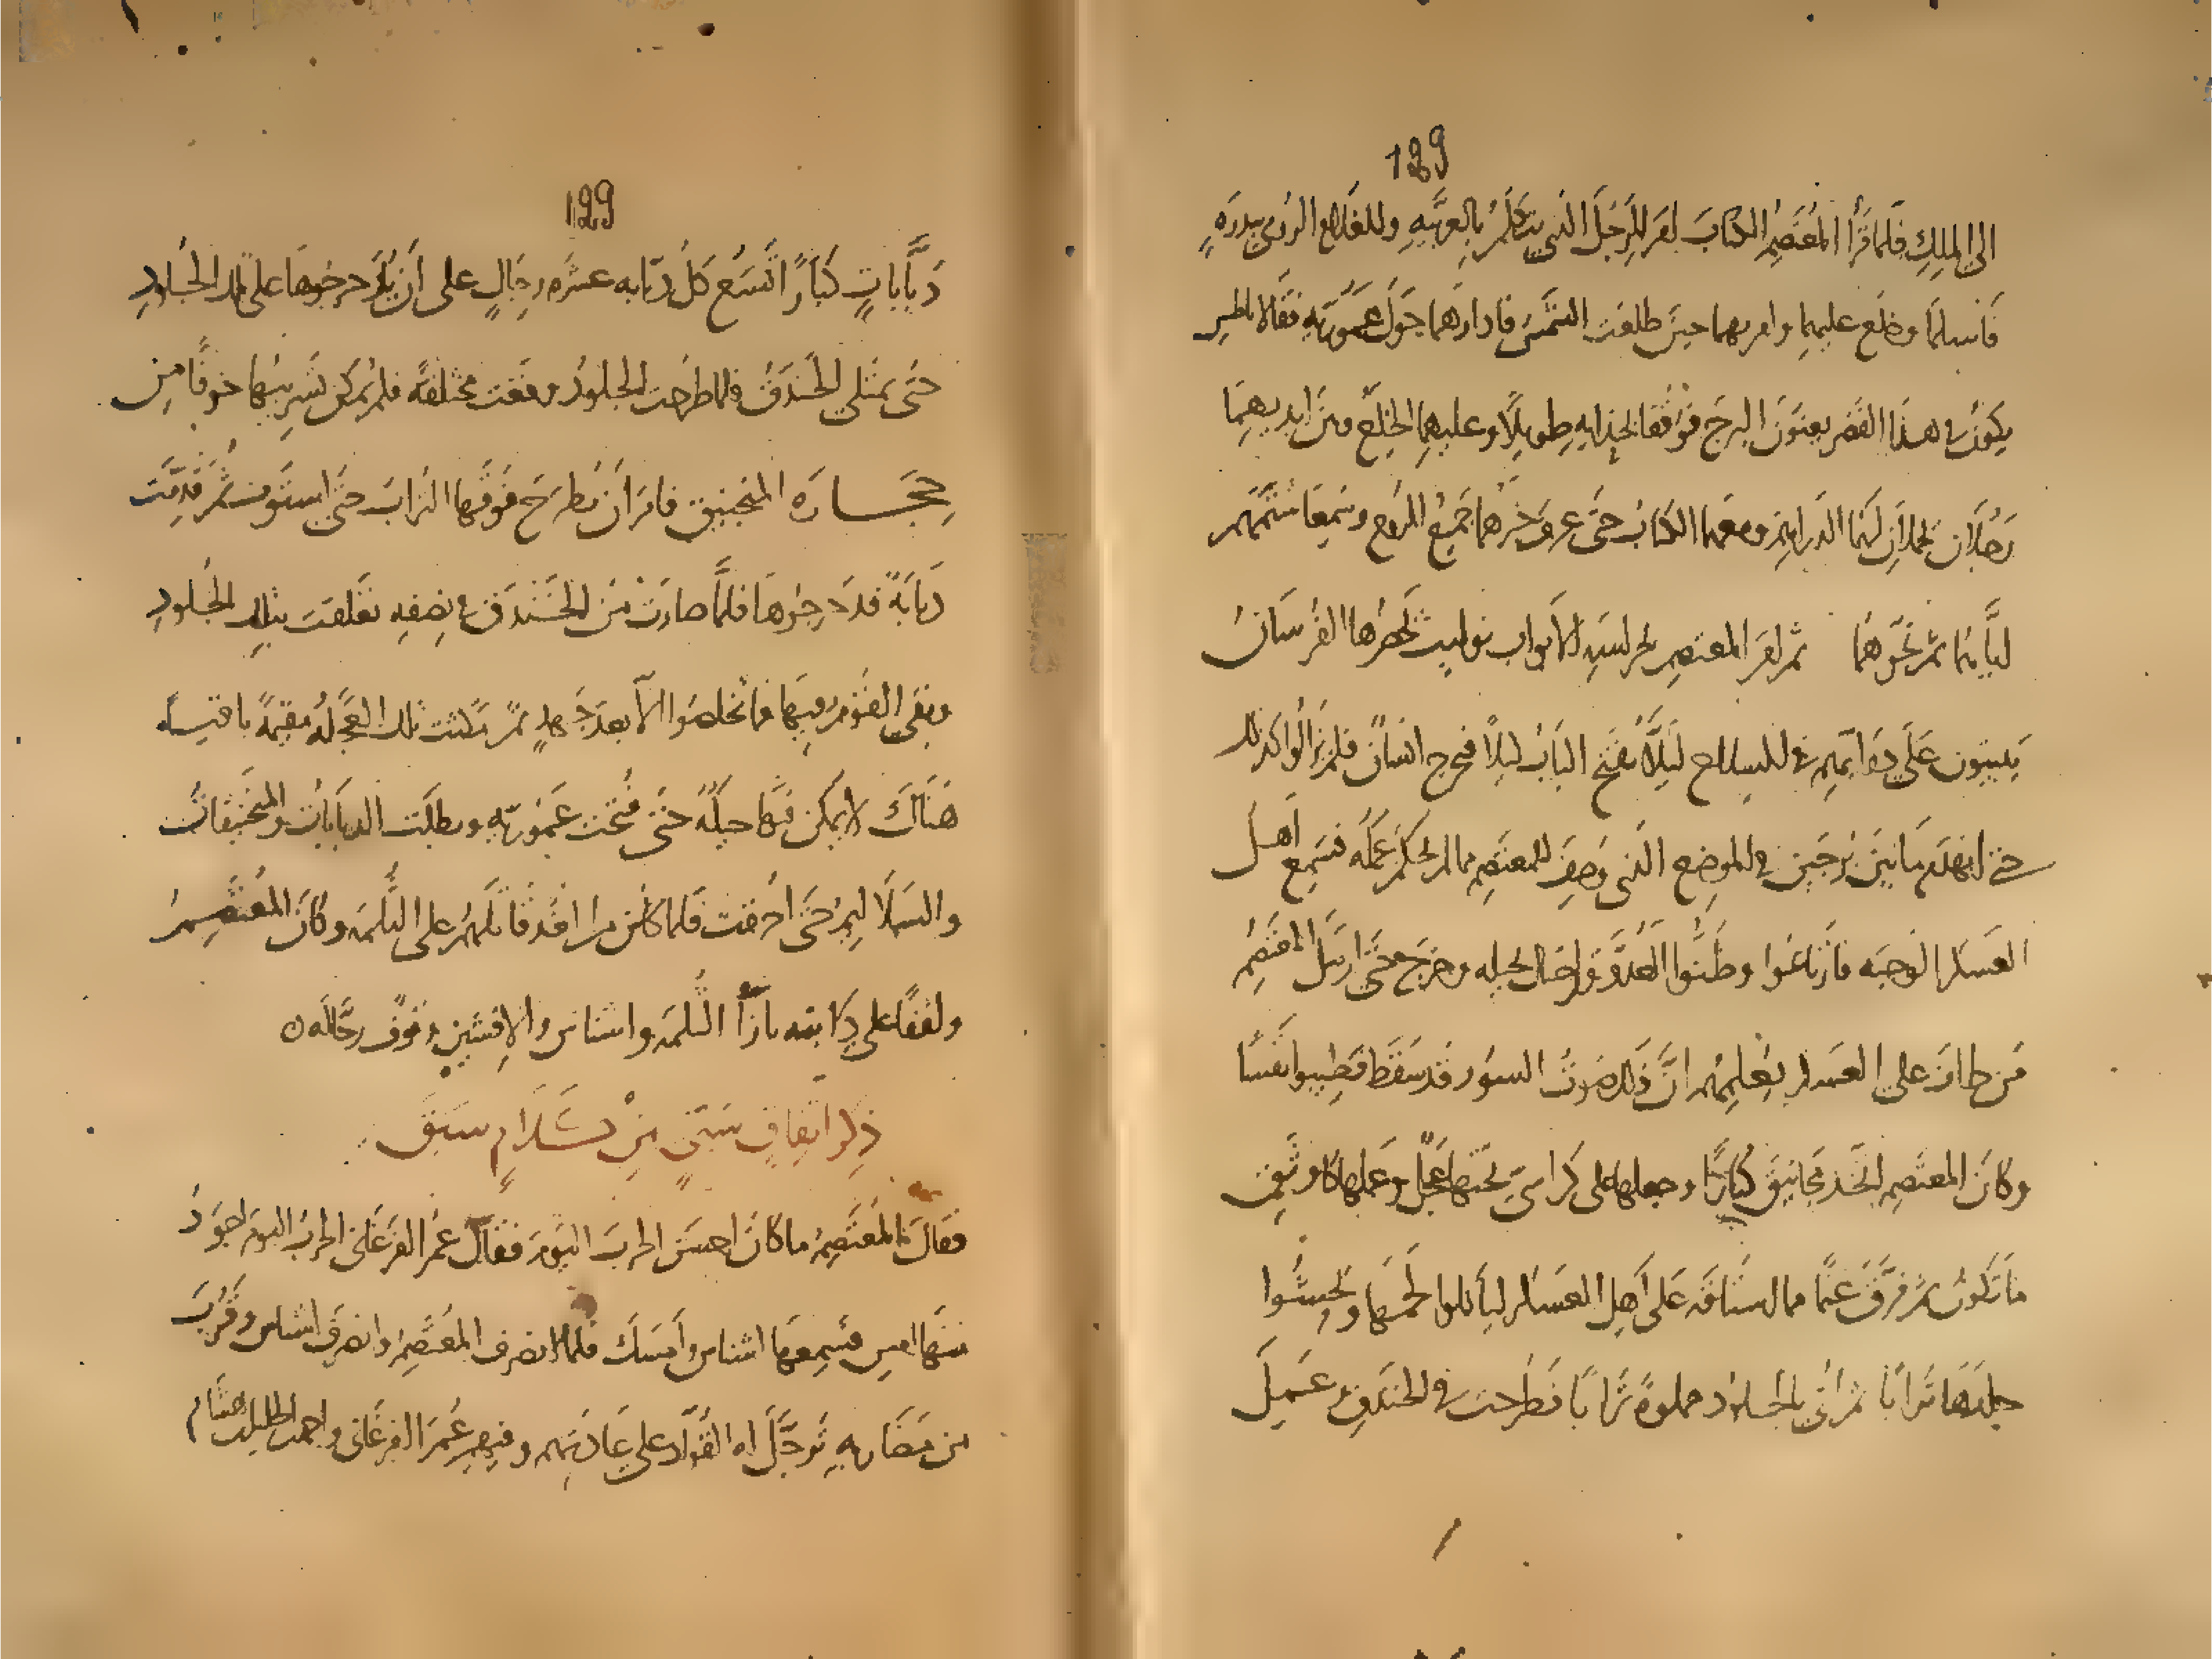 129
الى الملك فلما قرأ المعتصم الكتاب امر للرجل الذي يتكلم بالعربيه وللغلام الرومي ببدره
فاسلما وخلع عليهما وامر بهما حين طلعت الشمس فادارهما حول عموريه فقالا ياطس
يكون في هذا القصر يعنون البرج فوقفا بحذايه طويلًا وعليهما الخلع وبين ايديهما
رجلان يحملان لهما الدراهم ومعهما الكتاب حتى عرف خبرهما جميع الروم وسمعا شتمهم
ثم نحوهما ثم امر المعتصم بحراسه الابواب نوايب يحضرها الفرسان
يبيتون على دوابهم في السلاح ليلًا يفتح الباب ليلًا فخرج انسان فلم يزالوا كذلك
حتى انهدم ما بين برجين في الموضع الذي وصف للمعتصم مما لم يحكم عمله فسمع اهل
العسكر الوجبه فارتاعوا وظنوا العدو قد احتال بحيله وخرج حتى ارسل المعتصم
من طاف على العسكر يعلمهم ان ذلك صوت السور قد سقط فطيبوا نفسًا
وكان المعتصم اتخذ مجانيق كبارًا وجعلها على كراسي تحتها عجل وعملها كاوثق
ما تكون ثم فرق غنمًا مما استاقه على اهل العسكر لياكلوا لحمها ويحشوا
جلدها ترابًا ثم اتى بالجلود مملوة ترابًا فطرحت في الخندق عمل
129
دبابات كبارًا تسع كل دبابه عشره رجال على ان يدحرجوها على تلك الجلود
حتى يمتلي الخندق فلما طرحت الجلود وقعت مختلفةً فلم يمكن تسويتها خوفًا من
حجاره المنجنيق فامر ان يطرح فوقها التراب حتى استوت ثم قدمت
دبابة فدحرجوها فلما صارت من الخندق في نصفه تعلقت بتلك الجلود
وبقى القوم فيها فما تخلصوا الا بعد جهد ثم مكثت تلك العجله مقيمة باقيه
هناك لا يمكن فيها حيلة حتى فتحت عموريه وبطلت الدبابات والمنجنيقات
والسلاليم حتى احرقت فلما كان من الغد قاتلهم على الثلمه وكان المعتصم
واقفًا على دابته بازآ الثلمه واشناس والافشين وقوف رجاله
ذكر اتفاق سيي من كلام سبق
فقال المعتصم ما كان احسن الحرب اليوم فقال عمر الفرغاني الحرب اليوم اجود
منها امس فسمعها اشناس وامسك فلما انصرف المعتصم وانصرف اشناس وقرب
من مضاربه ترجل له القواد على عادتهم وفيهم عمر الفرغاني واحمد الخليل هشام